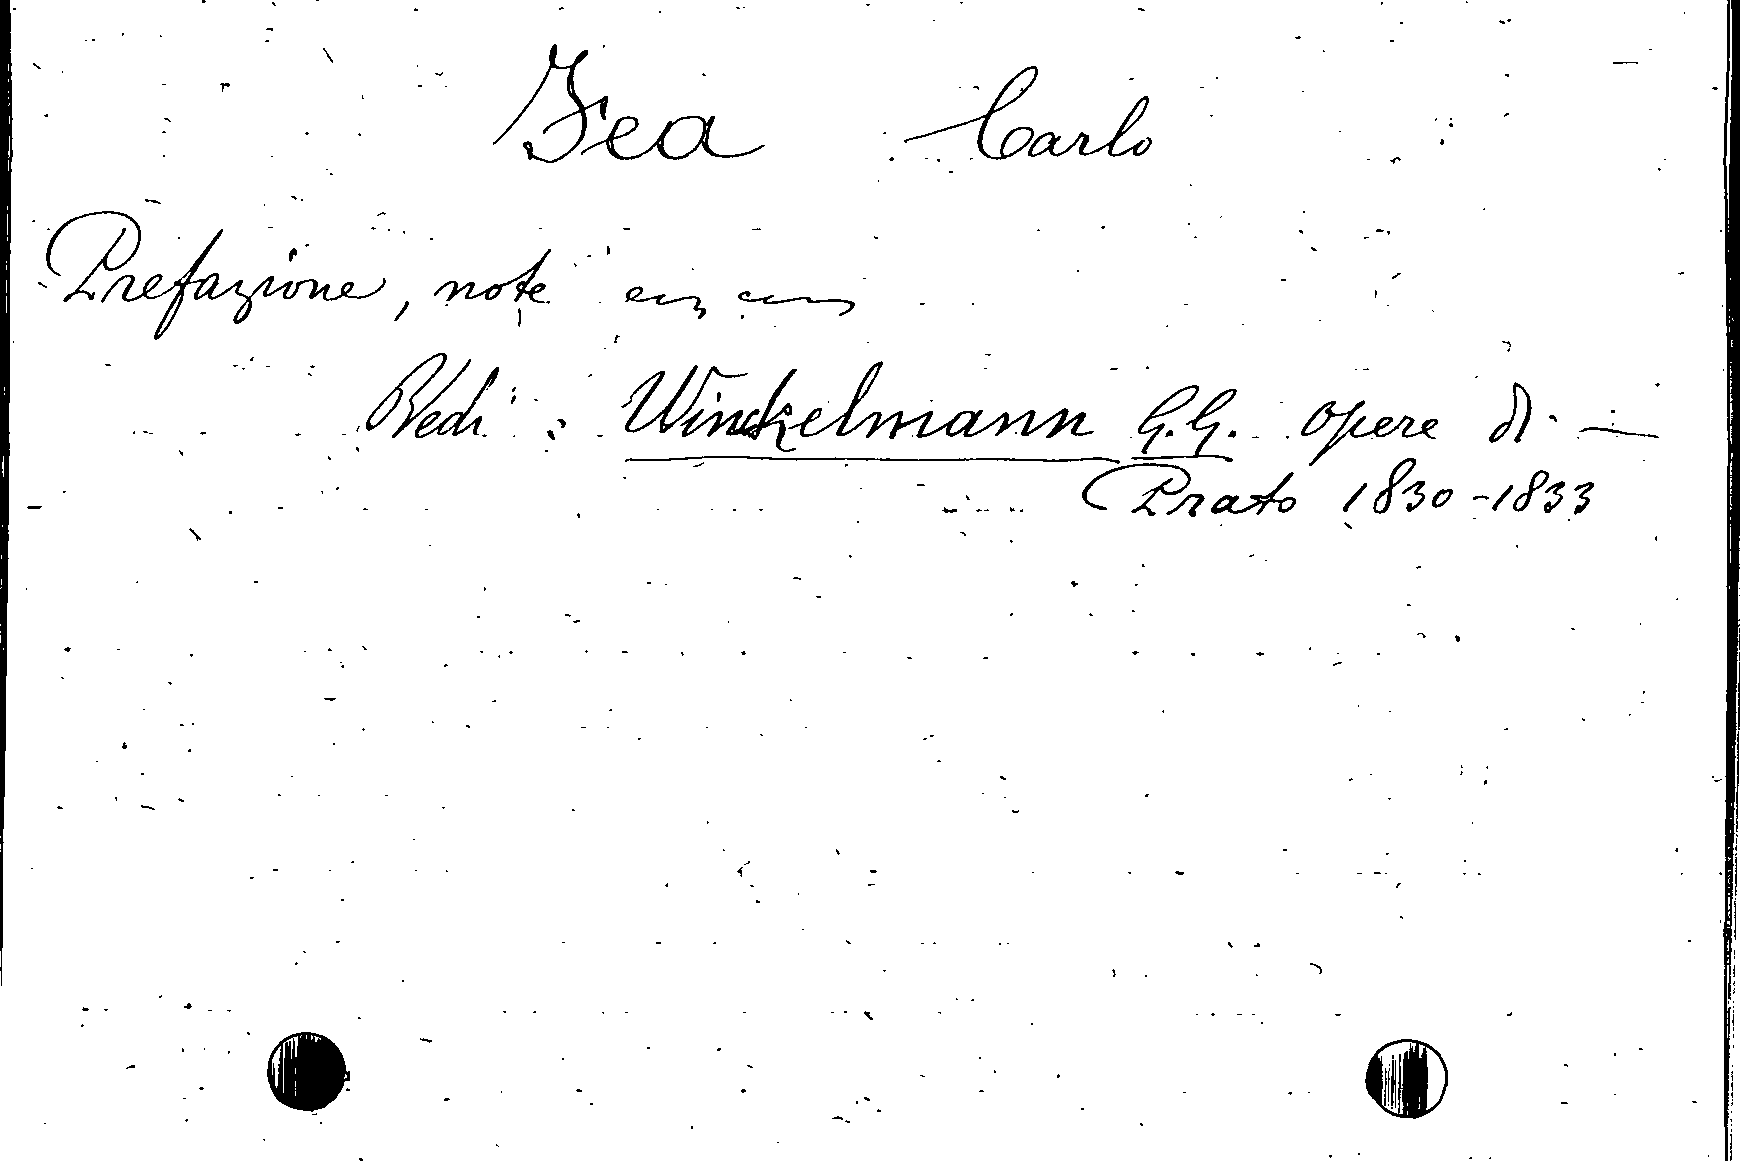 Fea Carlo
Prefazione, note
Vedi: Winckelmann G.G. Opere di —
Prato 1830-1833